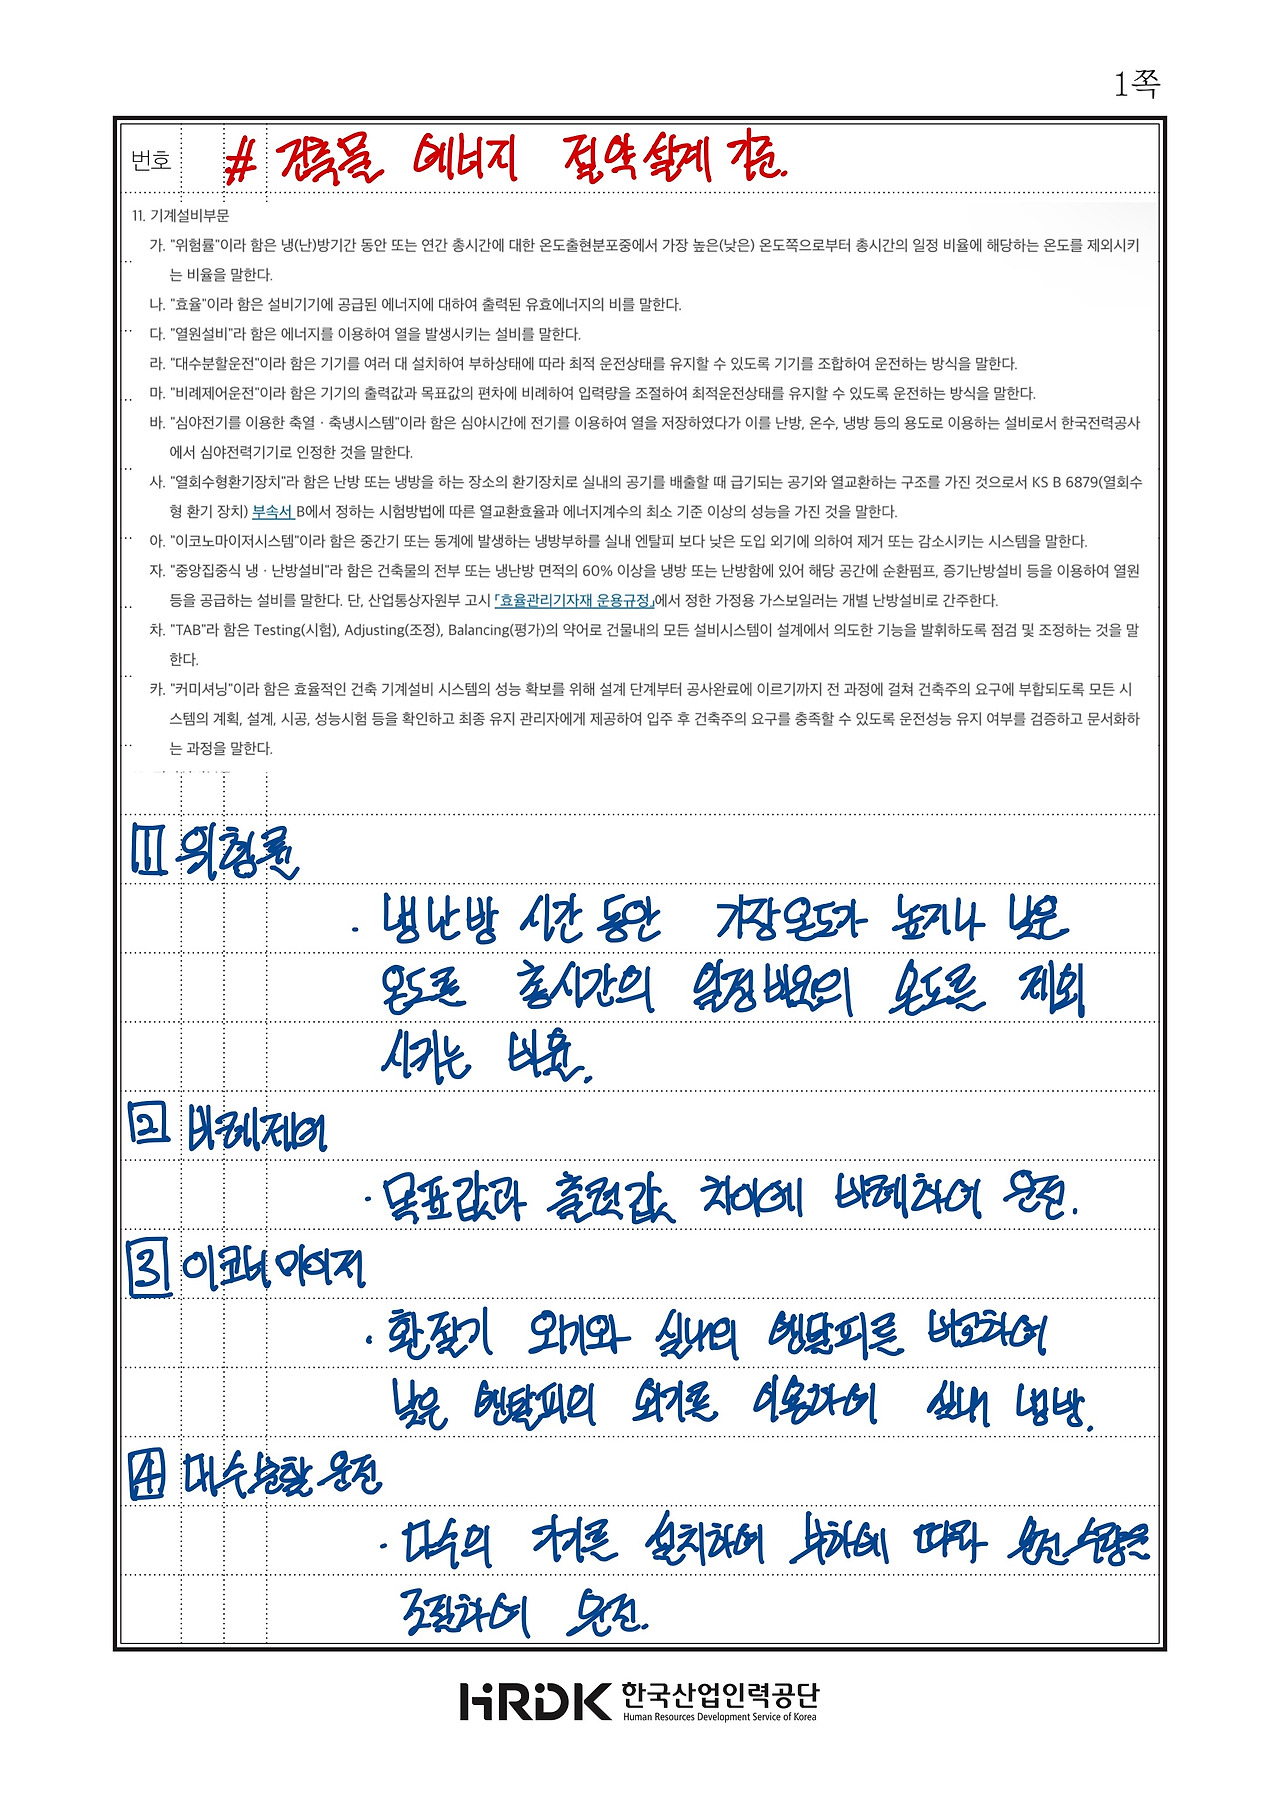 1쪽
번호 # 건축물 에너지 절약설계 기준.
11. 기계설비부문
가. "위험률"이라 함은 냉(난)방기간 동안 또는 연간 총시간에 대한 온도출현분포중에서 가장 높은(낮은) 온도쪽으로부터 총시간의 일정 비율에 해당하는 온도를 제외시키
는 비율을 말한다.
나. "효율"이라 함은 설비기기에 공급된 에너지에 대하여 출력된 유효에너지의 비를 말한다.
다. "열원설비"라 함은 에너지를 이용하여 열을 발생시키는 설비를 말한다.
라. "대수분할운전"이라 함은 기기를 여러 대 설치하여 부하상태에 따라 최적 운전상태를 유지할 수 있도록 기기를 조합하여 운전하는 방식을 말한다.
마. "비례제어운전"이라 함은 기기의 출력값과 목표값의 편차에 비례하여 입력량을 조절하여 최적운전상태를 유지할 수 있도록 운전하는 방식을 말한다.
바. "심야전기를 이용한 축열 · 축냉시스템"이라 함은 심야시간에 전기를 이용하여 열을 저장하였다가 이를 난방, 온수, 냉방 등의 용도로 이용하는 설비로서 한국전력공사
에서 심야전력기기로 인정한 것을 말한다.
사. "열회수형환기장치"라 함은 난방 또는 냉방을 하는 장소의 환기장치로 실내의 공기를 배출할 때 급기되는 공기와 열교환하는 구조를 가진 것으로서 KS B 6879(열회수
형 환기 장치) 부속서 B에서 정하는 시험방법에 따른 열교환효율과 에너지계수의 최소 기준 이상의 성능을 가진 것을 말한다.
아. "이코노마이저시스템"이라 함은 중간기 또는 동계에 발생하는 냉방부하를 실내 엔탈피 보다 낮은 도입 외기에 의하여 제거 또는 감소시키는 시스템을 말한다.
자. "중앙집중식 냉 · 난방설비"라 함은 건축물의 전부 또는 냉난방 면적의 60% 이상을 냉방 또는 난방함에 있어 해당 공간에 순환펌프, 증기난방설비 등을 이용하여 열원
등을 공급하는 설비를 말한다. 단, 산업통상자원부 고시 「효율관리기자재 운용규정」에서 정한 가정용 가스보일러는 개별 난방설비로 간주한다.
차. "TAB"라 함은 Testing(시험), Adjusting(조정), Balancing(평가)의 약어로 건물내의 모든 설비시스템이 설계에서 의도한 기능을 발휘하도록 점검 및 조정하는 것을 말
한다.
카. "커미셔닝"이라 함은 효율적인 건축 기계설비 시스템의 성능 확보를 위해 설계 단계부터 공사완료에 이르기까지 전 과정에 걸쳐 건축주의 요구에 부합되도록 모든 시
스템의 계획, 설계, 시공, 성능시험 등을 확인하고 최종 유지 관리자에게 제공하여 입주 후 건축주의 요구를 충족할 수 있도록 운전성능 유지 여부를 검증하고 문서화하
는 과정을 말한다.
1 위험률
· 냉난방 시간 동안 가장온도가 높거나 낮은
온도를 총시간의 일정비율의 온도를 제외
시키는 비율.
2 비례제어
· 목표값과 출력값 차이에 비례하여 운전.
3 이코너마이저
· 환절기 외기와 실내의 엔탈피를 비교하여
낮은 엔탈피의 외기를 이용하여 실내 냉방.
4 대수분할운전
· 다수의 기기를 설치하여 부하에 따라 운전수량을
조절하여 운전.
HRDK 한국산업인력공단
Human Resources Development Service of Korea